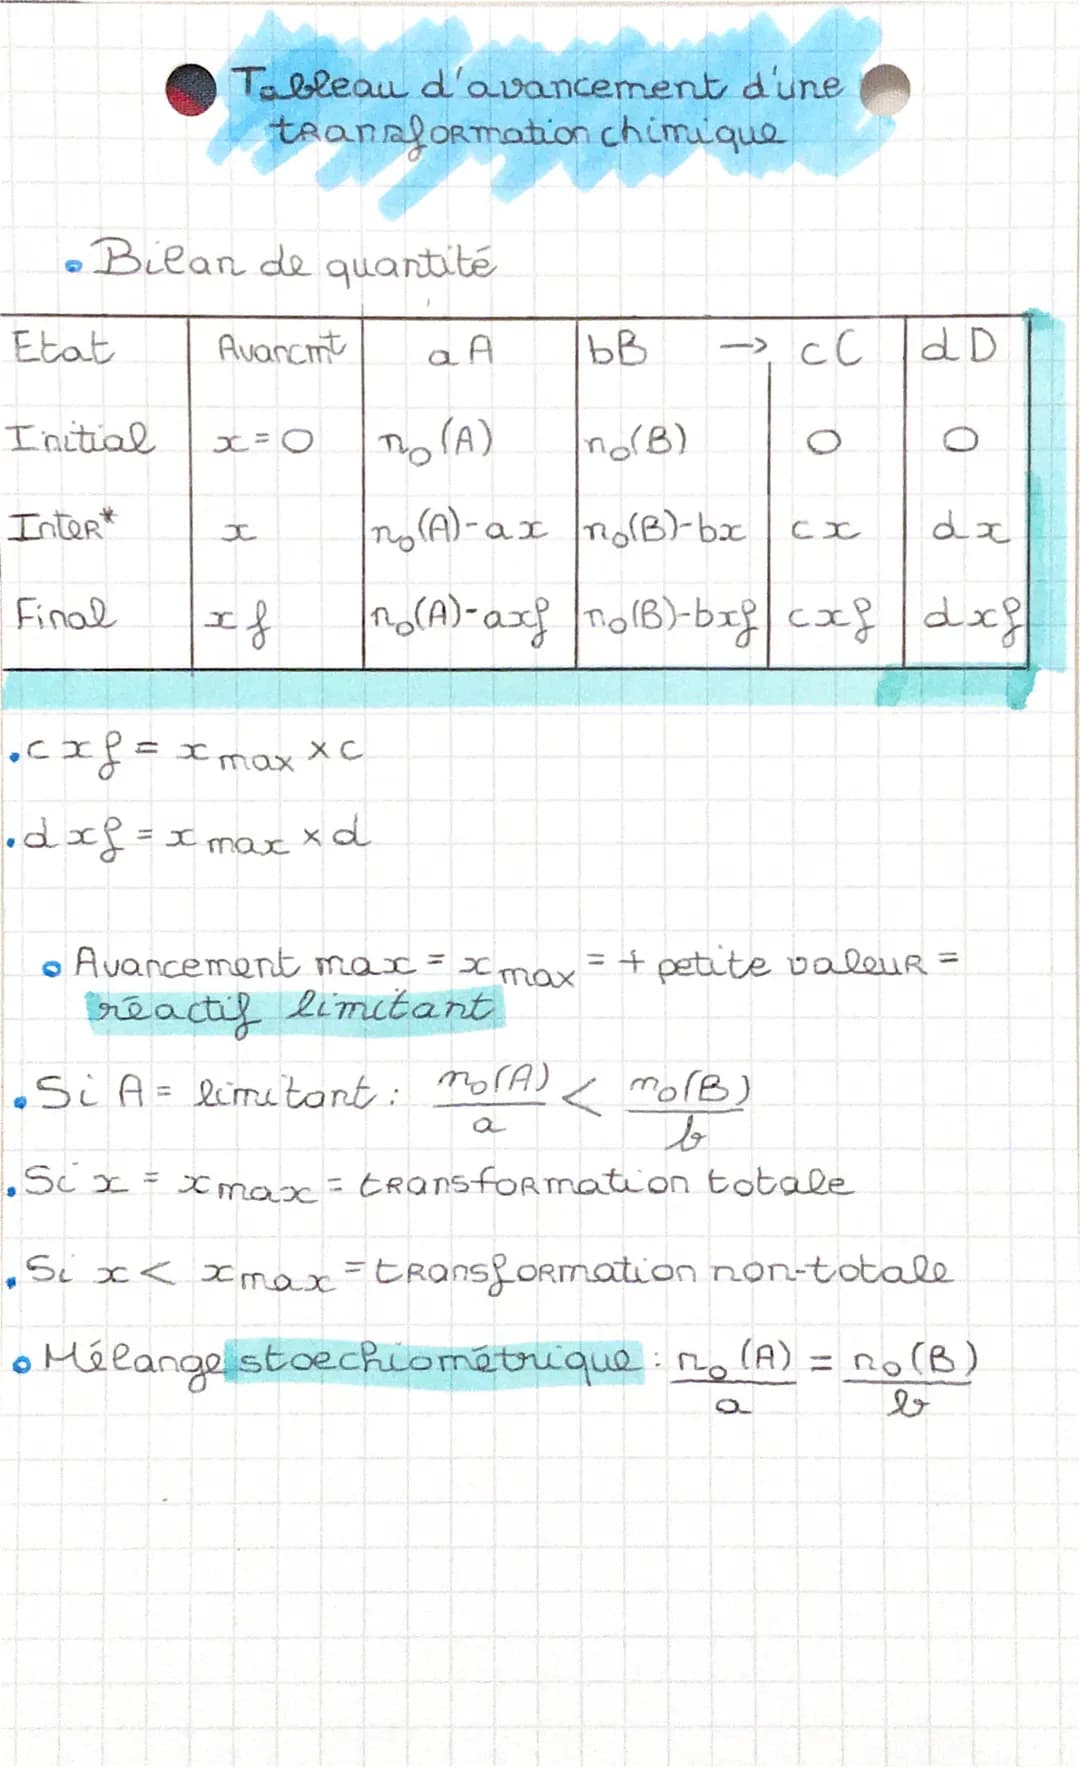 Tableau d'avancement d'une
transformation chimique
Bilan de quantité
Etat Avancmt aA bB → cC dD
Initial x=0 n₀(A) n₀(B) 0 0
Inter* x n₀(A)-ax n₀(B)-bx cx dx
Final xf n₀(A)-axf n₀(B)-bxf cxf dxf
.cxf = x max × c
.dxf = x max × d
Avancement max = x max = + petite valeur =
réactif limitant
.Si A = limitant : n₀(A)/a < n₀(B)/b
.Si x = x max = transformation totale
.Si x < x max = transformation non-totale
Mélange stoechiométrique : n₀(A)/a = n₀(B)/b